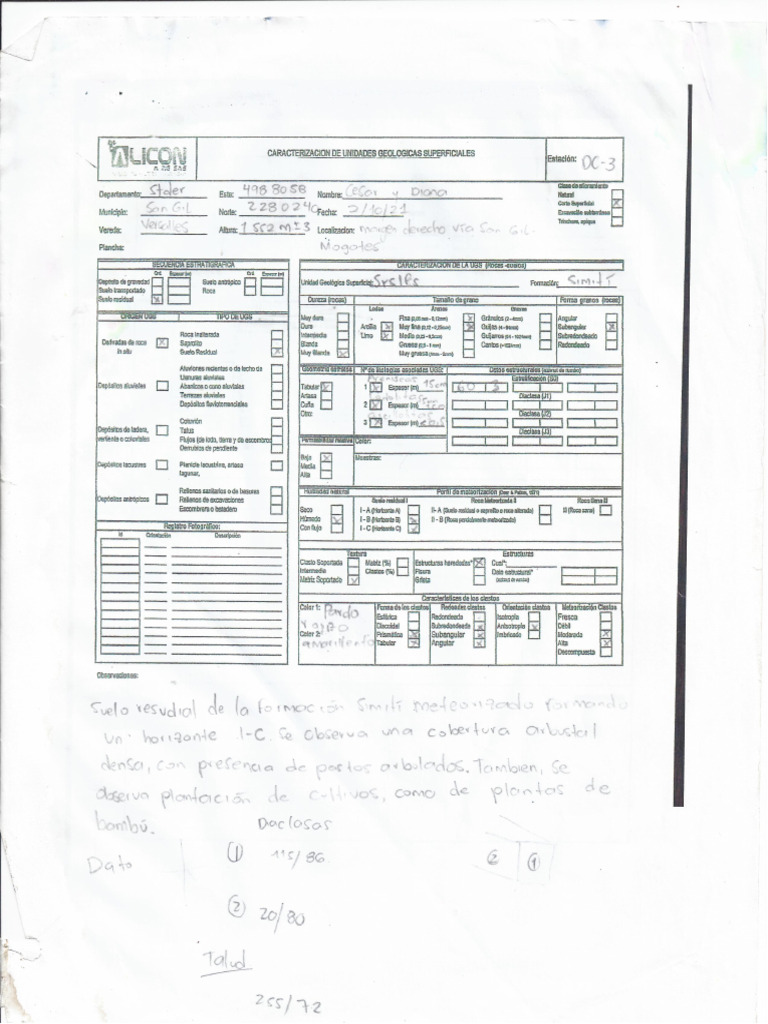 ALICON
CARACTERIZACION DE UNIDADES GEOLOGICAS SUPERFICIALES
Estación: OC-3
Departamento: Stder Este: 4988058 Nombre: Cesar y Diana
Municipio: San Gil Norte: 2280240 Fecha: 2/10/21
Vereda: Versalles Altura: 1552 Localizacion: margen derecho vía San Gil-
Mogotes
Plancha:
Clase de afloramiento
Natural
Corte Superficial X
Excavación subterránea
Trinchera, apique
SECUENCIA ESTRATIGRAFICA
Ord. Espesor (m) Ord. Espesor (m)
Depósito de gravedad Suelo antrópico
Suelo transportado Roca
Suelo residual X
ORIGEN UGS TIPO DE UGS
Derivadas de roca in situ X
Roca inalterada
Saprolito
Suelo Residual X
Depósitos aluviales
Aluviones recientes o de lecho de
Llanuras aluviales
Abanicos o conos aluviales
Terrazas aluviales
Depósitos fluviotorrenciales
Depósitos de ladera, vertiente o coluviales
Coluvión
Talus
Flujos (de lodo, tierra y de escombros
Derrubios de pendiente
Depósitos lacustres
Planicie lacustre
Depósitos antrópicos
Rellenos sanitarios o de basuras
Rellenos de excavaciones
Escombrera o botadero
Registro Fotográfico:
Id Orientación Descripción
CARACTERIZACION DE LA UGS (Rocas -suelos)
Unidad Geológica Superficial: Srsips Formación: Simití
Dureza (rocas) Tamaño de grano Forma granos (rocas)
Lodos Arenas Gravas
Muy dura
Dura
Intermedia
Blanda
Muy Blanda X
Arcilla
Limo
Fina
Muy fina
Media
Gruesa
Muy gruesa
Gránulos
Guijas
Guijarros
Cantos
Angular
Subangular X
Subredondeado
Redondeado
Geometría estratos
Tabular X
Acase
Cuña
Otro:
Nº de litologías asociadas UGS:
1 X Espesor (m) 15cm
2 X Espesor (m)
3 X Espesor (m)
Datos estructurales
Estratificación (S0) 60 3
Diaclasa (J1)
Diaclasa (J2)
Diaclasa (J3)
Permeabilidad relativa Color:
Baja X Muestras:
Media
Alta
Humedad natural
Seco
Húmedo X
Con flujo
Perfil de meteorización
Suelo residual I
I - A (Horizonte A)
I - B (Horizonte B)
I - C (Horizonte C)
Roca Meteorizada II
II- A (Suelo residual o saprolito o roca alterada)
II - B (Roca parcialmente meteorizada)
Roca Sana III
III (Roca sana)
Textura
Clasto Soportada Matriz (%)
Intermedia Clastos (%)
Matriz Soportado X
Estructuras
Estructuras heredadas* X Cual*:
Fisura Dato estructural*
Grieta
Características de los clastos
Color 1: Pardo
rojizo
Color 2:
amarillento
Forma de los clastos
Esférica
Discoidal
Prismática X
Tabular X
Redondez clastos
Redondeada
Subredondeada X
Subangular X
Angular X
Orientación clastos
Isotropía
Anisotropía X
Imbricado
Meteorización Clastos
Fresca
Débil
Moderada X
Alta X
Descompuesta
Observaciones:
Suelo resudial de la formación Simití meteorizado formando
un horizonte I-C. Se observa una cobertura arbustal
densa, con presencia de pastos arbolados. Tambien, se
observa plantación de cultivos, como de plantas de
bambú. Daclosas
Dato ① 115/86 ② ①
② 20/80
Talud
255/72